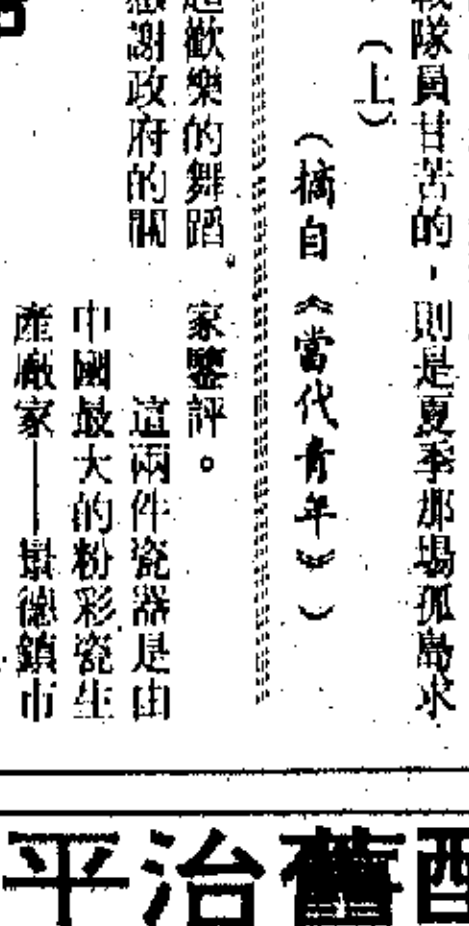 隊員甘苦的，則是夏季那場孤島求
（上）
（摘自《當代青年》）
歡樂的舞蹈。
謝政府的關
家鑒評。
這兩件瓷器是由
中國最大的粉彩瓷生
產廠家——景德鎮市
平治舊